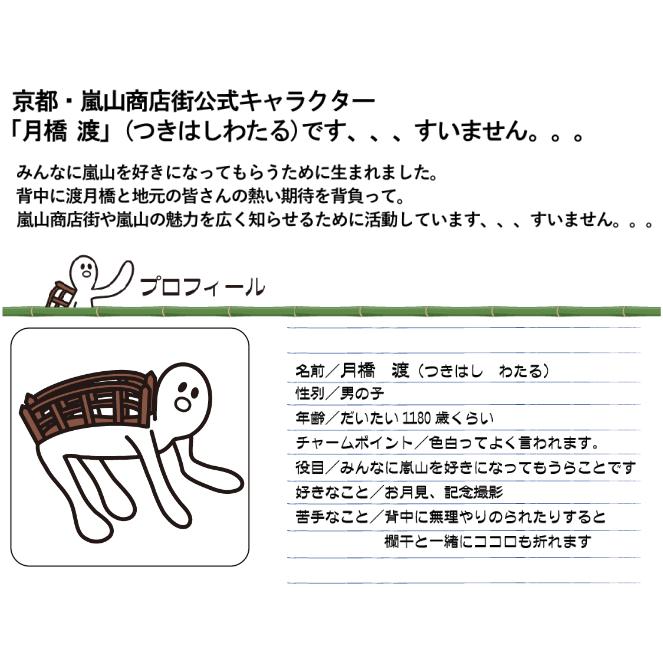 京都・嵐山商店街公式キャラクター
「月橋 渡」(つきはしわたる)です、、、すいません。。。
みんなに嵐山を好きになってもらうために生まれました。
背中に渡月橋と地元の皆さんの熱い期待を背負って。
嵐山商店街や嵐山の魅力を広く知らせるために活動しています、、、すいません。。。
プロフィール
名前／月橋　渡（つきはし　わたる）
性別／男の子
年齢／だいたい1180歳くらい
チャームポイント／色白ってよく言われます。
役目／みんなに嵐山を好きになってもうらことです
好きなこと／お月見、記念撮影
苦手なこと／背中に無理やりのられたりすると
欄干と一緒にココロも折れます